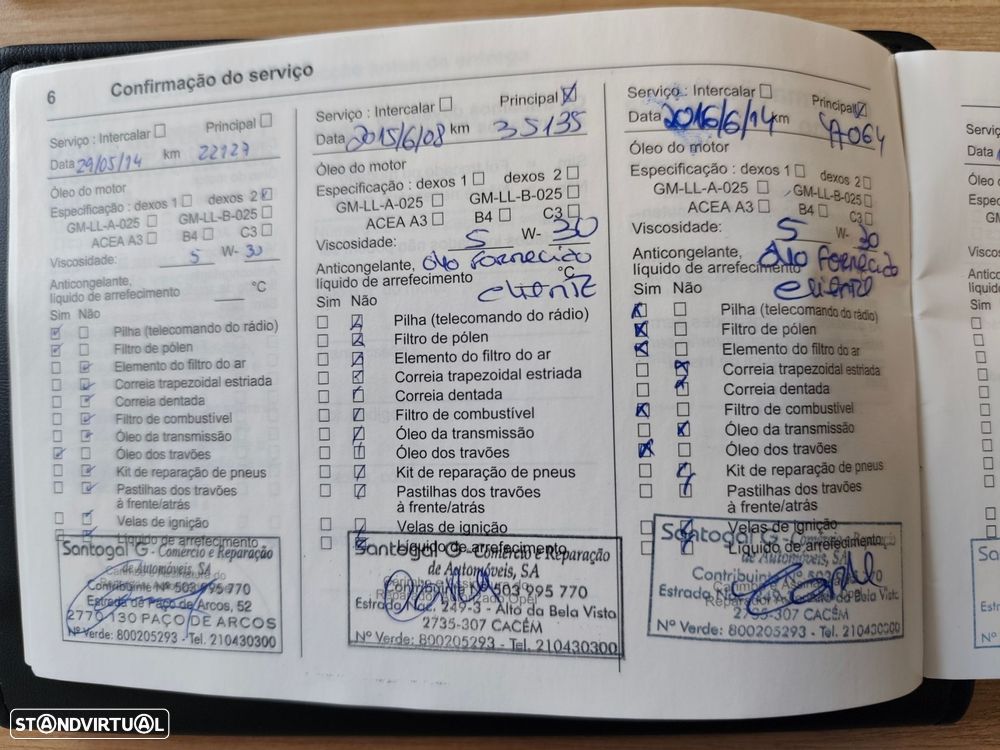 6 Confirmação do serviço
Serviço : Intercalar Principal
Data 29/05/14 km 22127
Óleo do motor
Especificação : dexos 1 dexos 2
GM-LL-A-025 GM-LL-B-025
ACEA A3 B4 C3
Viscosidade: 5 W- 30
Anticongelante,
líquido de arrefecimento °C
Sim Não
Pilha (telecomando do rádio)
Filtro de pólen
Elemento do filtro do ar
Correia trapezoidal estriada
Correia dentada
Filtro de combustível
Óleo da transmissão
Óleo dos travões
Kit de reparação de pneus
Pastilhas dos travões
à frente/atrás
Velas de ignição
Líquido de arrefecimento
Santogal G - Comércio e Reparação
de Automóveis, SA
Contribuinte Nº 503 995 770
Estrada de Paço de Arcos, 52
2770-130 PAÇO DE ARCOS
Nº Verde: 800205293 - Tel. 210430300
Serviço : Intercalar Principal
Data 2015/6/08 km 35135
Óleo do motor
Especificação : dexos 1 dexos 2
GM-LL-A-025 GM-LL-B-025
ACEA A3 B4 C3
Viscosidade: 5 W- 30
Anticongelante, óleo fornecido
líquido de arrefecimento °C
cliente
Sim Não
Pilha (telecomando do rádio)
Filtro de pólen
Elemento do filtro do ar
Correia trapezoidal estriada
Correia dentada
Filtro de combustível
Óleo da transmissão
Óleo dos travões
Kit de reparação de pneus
Pastilhas dos travões
à frente/atrás
Velas de ignição
Líquido de arrefecimento
Santogal G - Comércio e Reparação
de Automóveis, SA
503 995 770
Estrada 249-3 - Alto da Bela Vista
2735-307 CACÉM
Nº Verde: 800205293 - Tel. 210430300
Serviço : Intercalar Principal
Data 2016/6/14 km
Óleo do motor
Especificação : dexos 1 dexos 2
GM-LL-A-025 GM-LL-B-025
ACEA A3 B4 C3
Viscosidade: 5 W- 30
Anticongelante, óleo fornecido
líquido de arrefecimento
cliente
Sim Não
Pilha (telecomando do rádio)
Filtro de pólen
Elemento do filtro do ar
Correia trapezoidal estriada
Correia dentada
Filtro de combustível
Óleo da transmissão
Óleo dos travões
Kit de reparação de pneus
Pastilhas dos travões
à frente/atrás
Velas de ignição
Líquido de arrefecimento
Santogal G - Comércio e Reparação
de Automóveis, SA
Contribuinte Nº 503 995 770
Estrada Nº 249-3 - Alto da Bela Vista
2735-307 CACÉM
Nº Verde: 800205293 - Tel. 210430300
STANDVIRTUAL